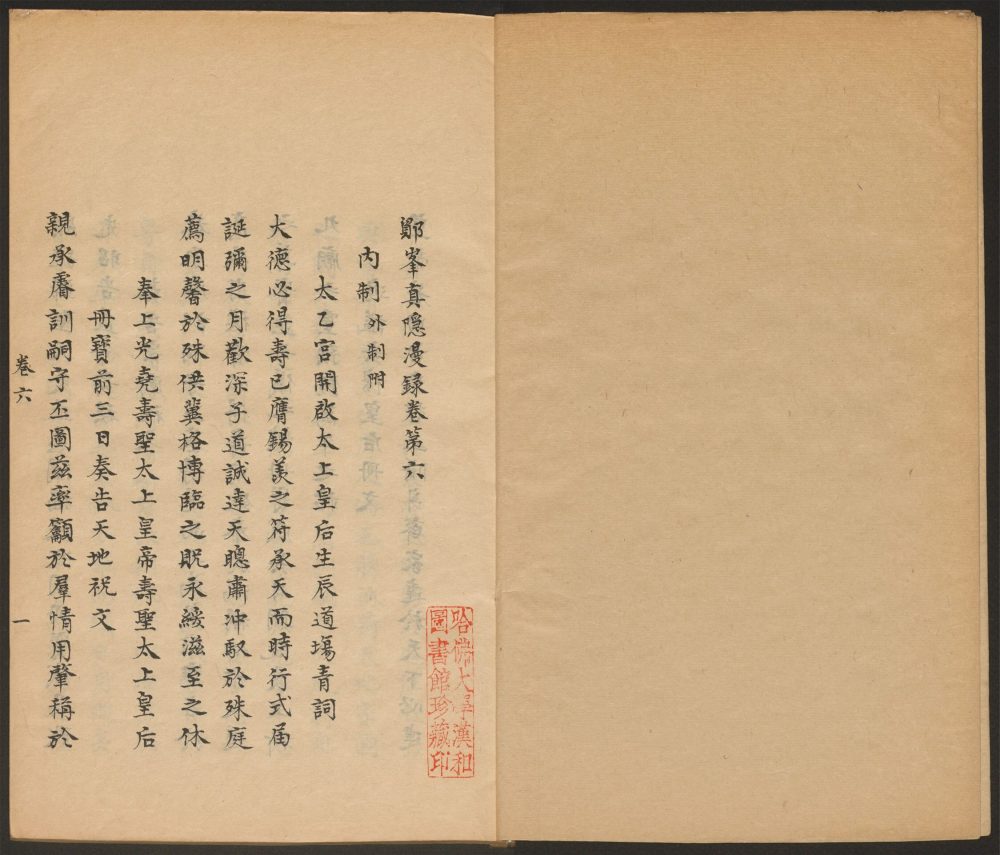 鄮峯真隱漫録卷第六
內制 外制附
太乙宮開啟太上皇后生辰道場青詞
大德必得壽已膺錫羨之符承天而時行式届
誕彌之月歡深子道誠達天聰肅冲馭於殊庭
薦明馨於殊供冀格博臨之貺永綏滋至之休
奉上光堯壽聖太上皇帝壽聖太上皇后
冊寳前三日奏告天地祝文
親承睿訓嗣守丕圖兹率籲於羣情用肇稱於
卷六
一
哈佛大學漢和
圖書館珍藏印